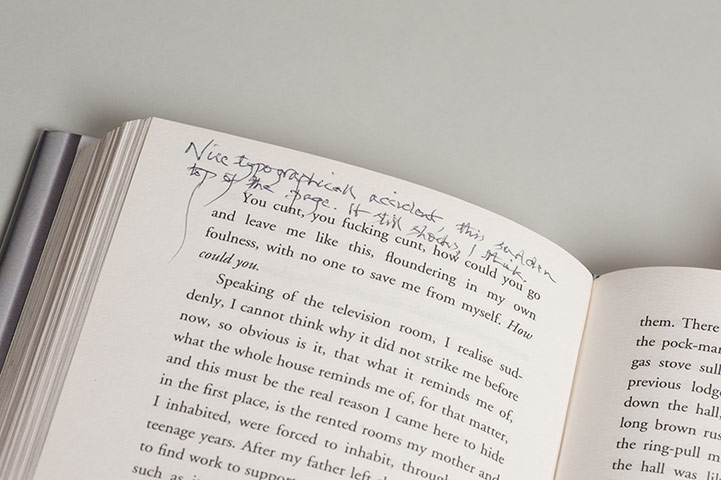 Nice typographical accident, this sudden
top of the page. It still shocks, I think.
You cunt, you fucking cunt, how could you go
and leave me like this, floundering in my own
foulness, with no one to save me from myself. How
could you.
Speaking of the television room, I realise sud-
denly, I cannot think why it did not strike me before
now, so obvious is it, that what it reminds me of,
what the whole house reminds me of, for that matter,
and this must be the real reason I came here to hide
in the first place, is the rented rooms my mother and
I inhabited, were forced to inhabit, through
teenage years. After my father left
to find work to support
such as
them. There
the pock-mar
gas stove sull
previous lodge
down the hall,
long brown rus
the ring-pull m
the hall was lik